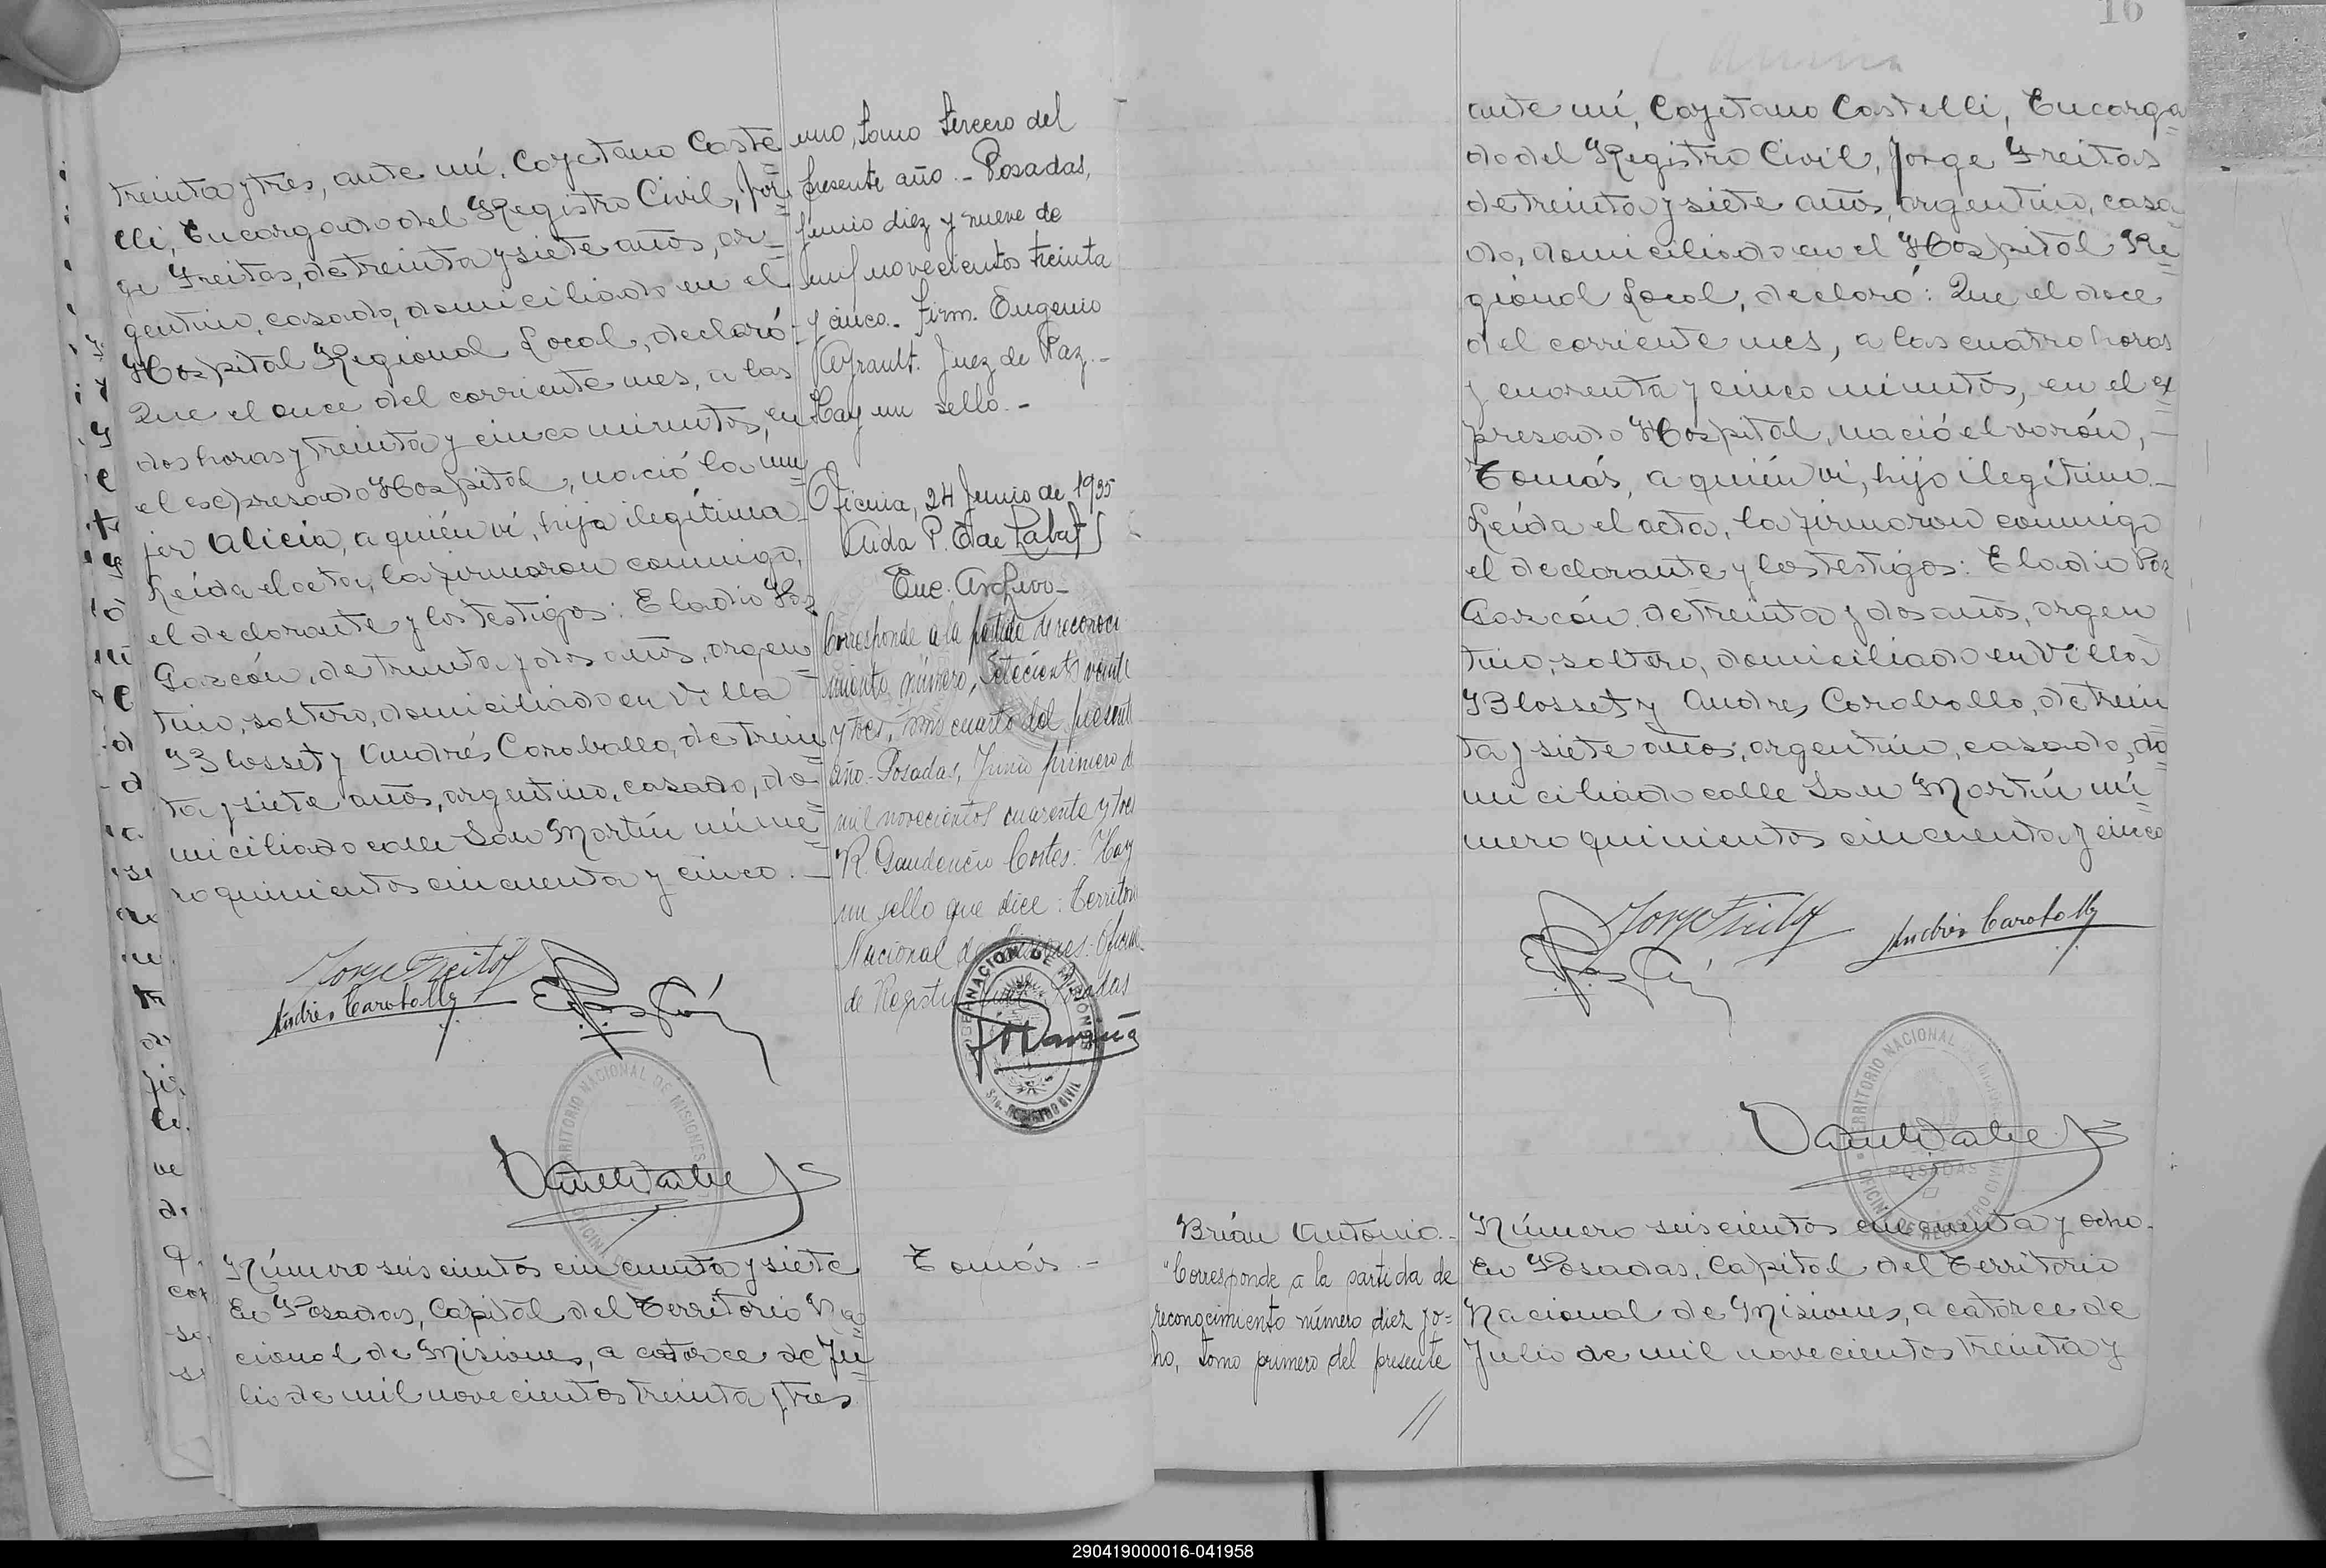 treinta y tres, ante mí, Cayetano Caste=
lli, Encargado del Registro Civil, Jor=
ge Freitas, de treinta y siete años, ar=
gentino, casado, domiciliado en el
Hospital Regional Local, declaró:
Que el once del corriente mes, a las
dos horas y treinta y cinco minutos, en
el expresado Hospital, nació la mu=
jer Alicia, a quién ví, hija ilegítima.
Leída el acta, la firmaron conmigo,
el declarante y los testigos: Eladio Paz
Garzón, de treinta y dos años, argen
tino, soltero, domiciliado en Villa
Blosset y Andrés Caraballo, de trein
ta y siete años, argentino, casado, do=
miciliado calle San Martín núme=
ro quinientos cincuenta y cinco.
Jorge Freitas
Andrés Caraballo
TERRITORIO NACIONAL DE MISIONES
Número seiscientos cincuenta y siete
En Posadas, Capital del Territorio Na=
cional de Misiones, a catorce de Ju=
lio de mil novecientos treinta y tres
uno, tomo tercero del
presente año.- Posadas,
Junio diez y nueve de
mil novecientos treinta
y cinco.- Firm. Eugenio
Ayrault. Juez de Paz.-
Hay un sello.-
Oficina, 24 Junio de 1935
Aida P. E de Labat
Enc. Archivo-
Corresponde a la partida de reconoci
miento número, setecientos veinte
y tres, tomo cuarto del presente
año.- Posadas, Junio primero de
mil novecientos cuarenta y tres
R. Gaudencio Cortes.- Hay
un sello que dice: Territorio
Nacional de Misiones- Oficina
de Registro Civil Posadas
GOBERNACION DE MISIONES
REGISTRO CIVIL
Tomás.-
16
ante mí, Cayetano Castelli, Encarga=
do del Registro Civil, Jorge Freitas
de treinta y siete años, argentino, casa=
do, domiciliado en el Hospital Re=
gional Local, declaró: Que el doce
del corriente mes, a las cuatro horas
y cuarenta y cinco minutos, en el ex=
presado Hospital, nació el varón,-
Tomás, a quién ví, hijo ilegítimo.-
Leída el acta, la firmaron conmigo
el declarante y los testigos: Eladio Paz
Garzón, de treinta y dos años, argen
tino, soltero, domiciliado en Villa
Blosset y Andres Caraballo, de trein
ta y siete años, argentino, casado, do=
miciliado calle San Martín nú=
mero quinientos cincuenta y cinco
Jorge Freitas
Andrés Caraballo
TERRITORIO NACIONAL DE MISIONES
POSADAS
OFICINA DE REGISTRO CIVIL
Brián Antonio.-
"Corresponde a la partida de
reconocimiento número diez yo=
ho, tomo primero del presente
//
Número seiscientos cincuenta y ocho.
En Posadas, Capital del Territorio
Nacional de Misiones, a catorce de
Julio de mil novecientos treinta y
290419000016-041958